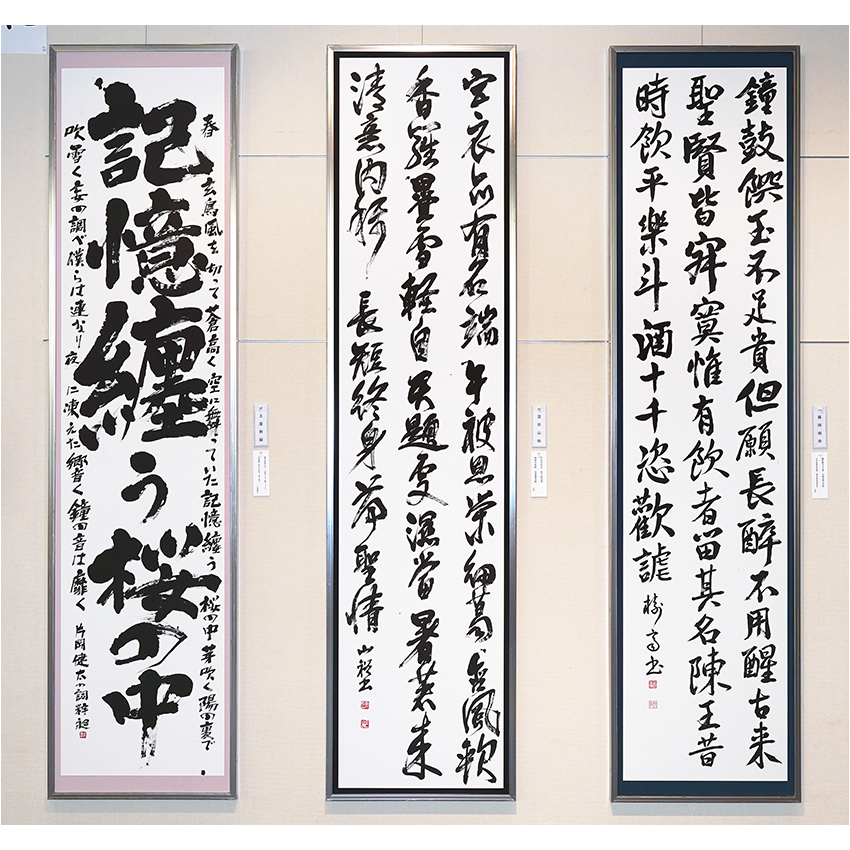 鐘鼓饌玉不足貴但願長醉不用醒古来
聖賢皆寂寞惟有飲者留其名陳王昔
時飲平樂斗酒十千恣歡謔
宮衣亦有名端午被恩栄細葛含風軟
香羅疊雪軽自天題処濕當暑著来
清意内称長短終身荷聖情
春 玄鳥風を切って蒼高く空に舞っていた記憶纏う桜の中芽吹く陽の裏で
記憶纏う桜の中
吹雪くの調べ僕らは連なり夜に凍えた響く鐘の音は靡く 片岡健太の詞